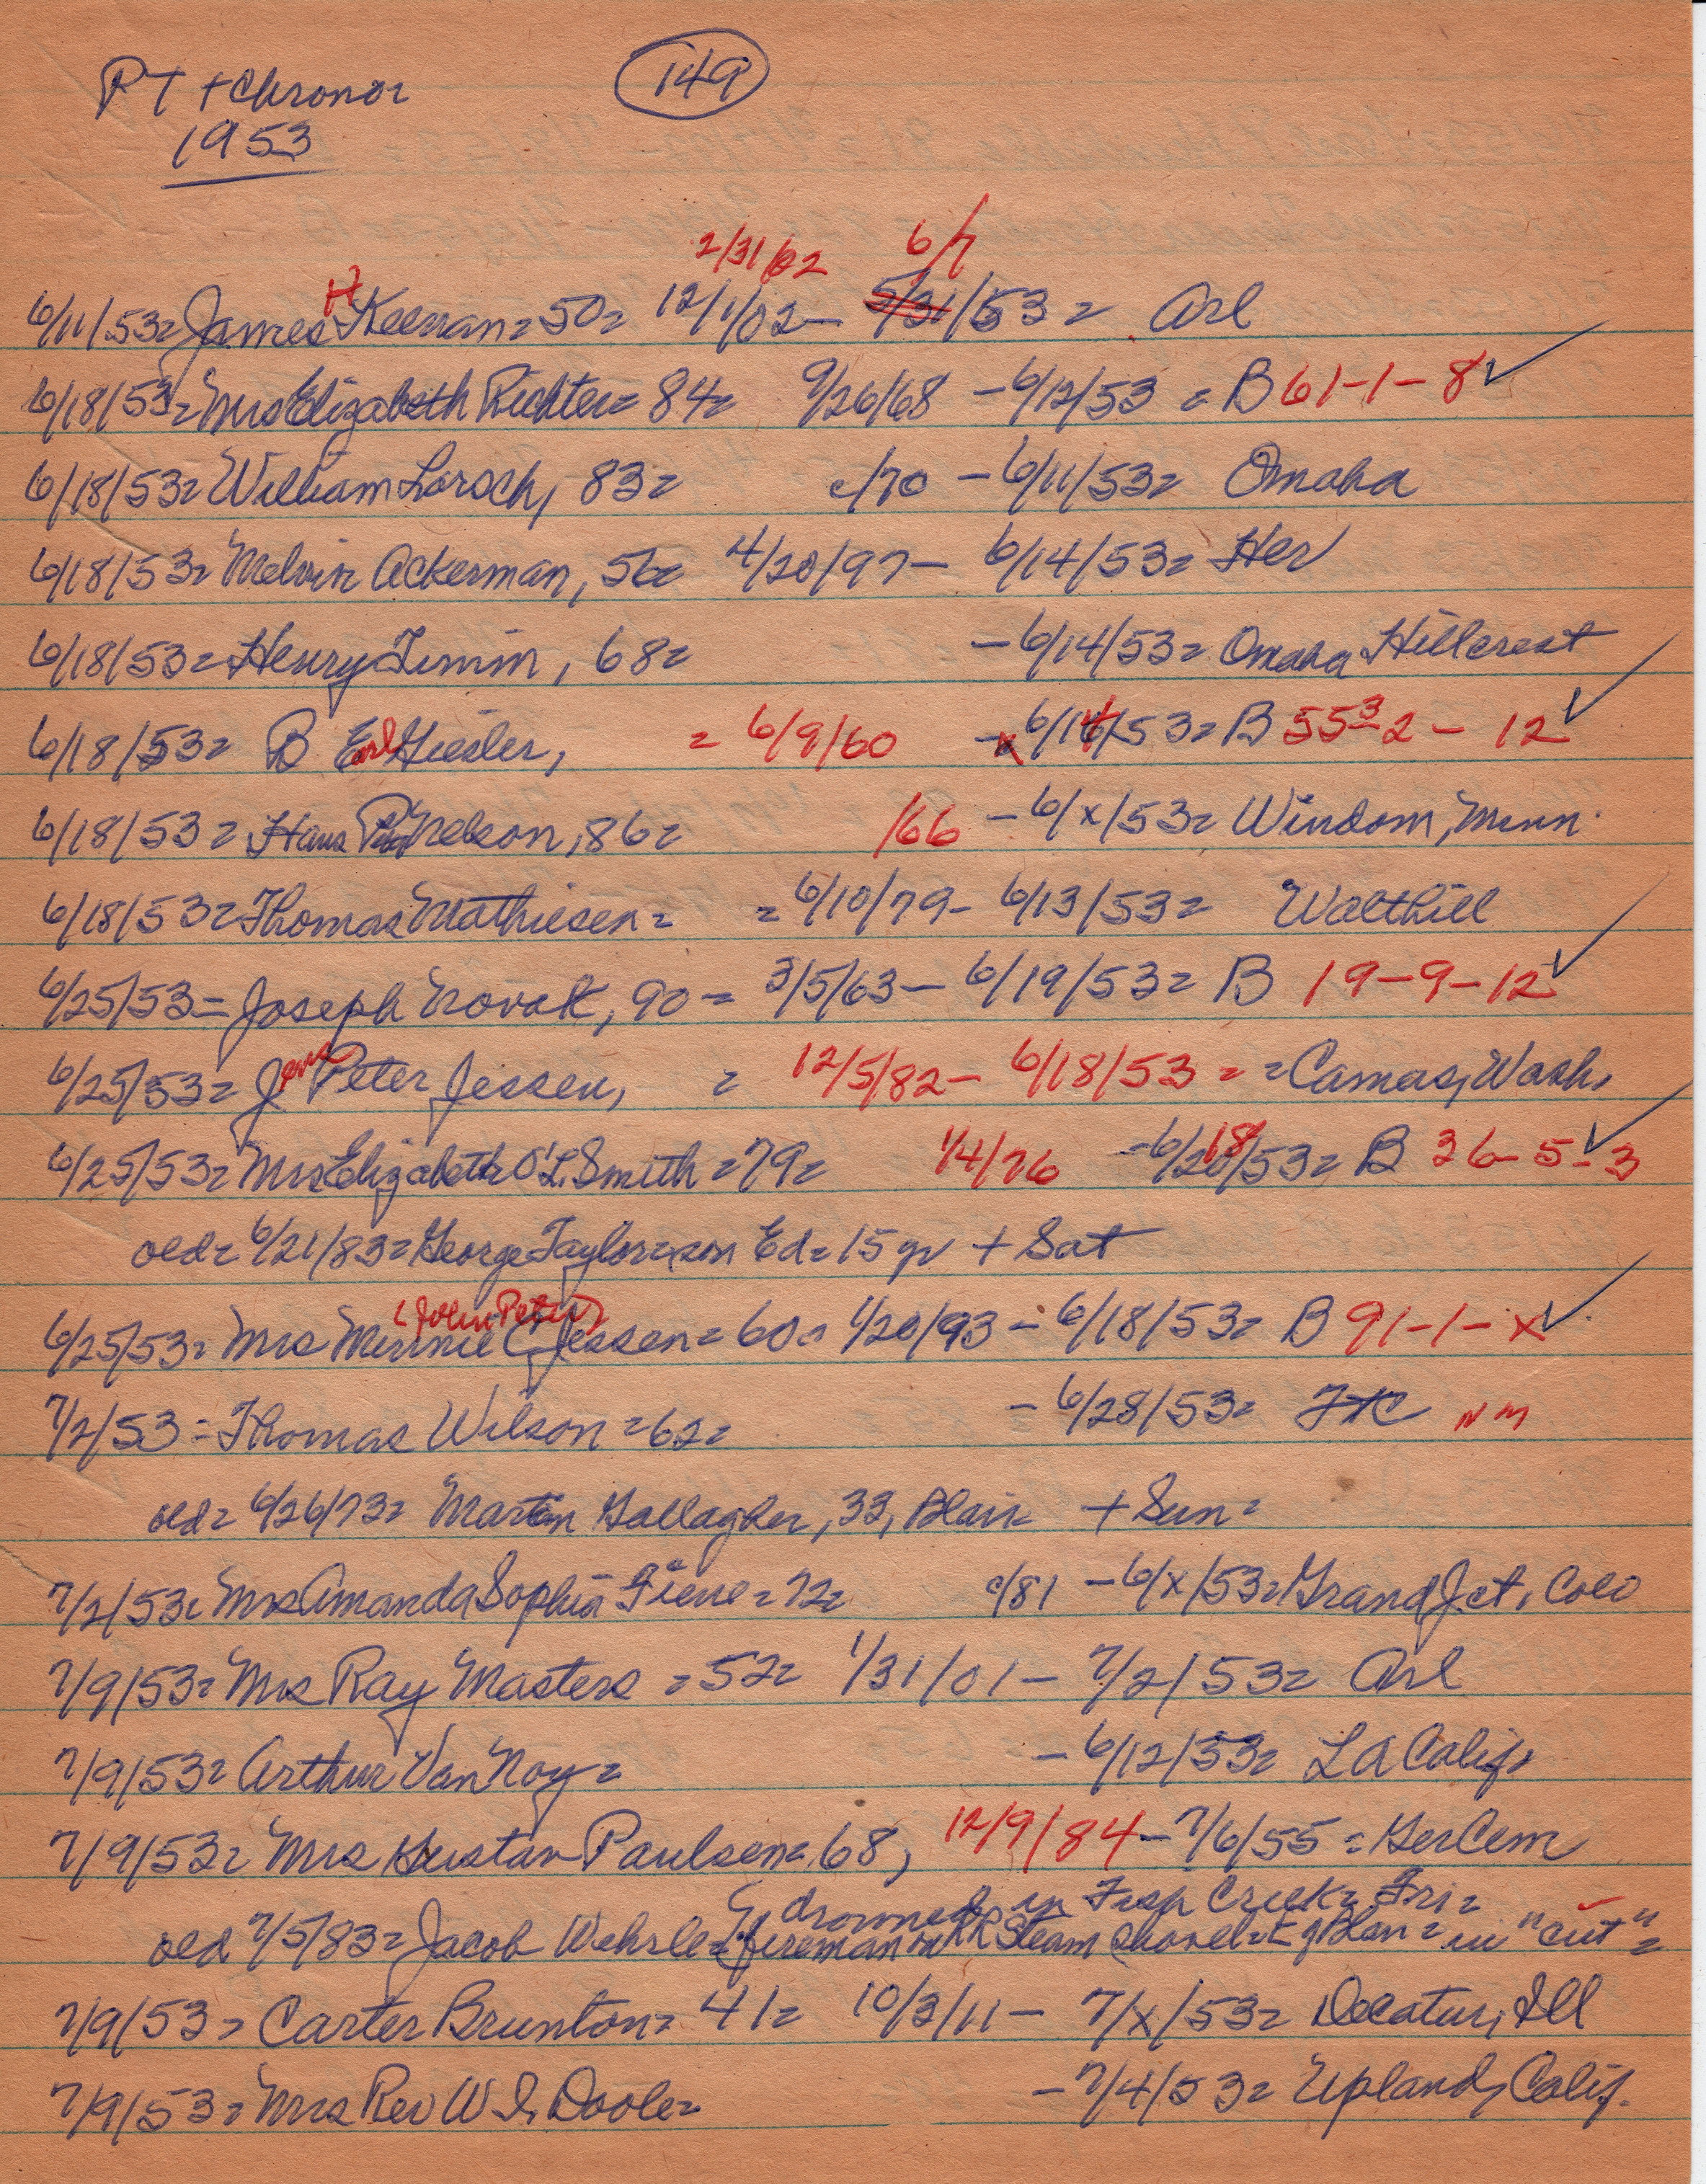 PT + Chronor 149
1953
2/31/02 6/7
6/11/53= James H Keenan= 50= 12/1/02- 5/31/53= Arl
6/18/53= Mrs Elizabeth Richter= 84= 9/26/68 -6/12/53 = B 61-1-8 ✓
6/18/53= William Larsch, 83= c/70 -6/11/53= Omaha
6/18/53= Melvin Ackerman, 56= 4/20/97- 6/14/53= Her
6/18/53= Henry Timm, 68= -6/14/53= Omaha Hillcrest
6/18/53= B Earl Giesler, = 6/9/60 -x6/14/53= B 55-3-2-12 ✓
6/18/53= Hans Nelson, 86= /66 -6/x/53= Windom, Minn.
6/18/53= Thomas Mathiesen= =6/10/79- 6/13/53= Walthill
6/25/53= Joseph Novak, 90= 3/5/63- 6/19/53= B 19-9-12 ✓
6/25/53= Jens Peter Jessen, = 12/5/82- 6/18/53 = =Camas, Wash.
6/25/53= Mrs Elizabeth O'L Smith=79= 1/4/76 -6/18/53= B 36-5-3 ✓
old= 6/21/83= George Taylor=son Ed=15 yr + Sat
(John Peter)
6/25/53= Mrs Minnie C Jessen= 60= 1/20/93- 6/18/53= B 91-1-x ✓
7/2/53= Thomas Wilson=62= -6/28/53= FtC NM
old= 6/26/73= Martin Gallagher, 33, Blair + Sun=
7/2/53= Mrs Amanda Sophia Fiene=72= c/81 -6/x/53= Grand Jct, Colo
7/9/53= Mrs Ray Masters =52= 1/31/01- 7/2/53= Arl
7/9/53= Arthur Van Noy= -6/12/53= LA Calif.
7/9/53= Mrs Gustav Paulsen= 68, 12/9/84-7/6/55= Ger Cem
drowned in Fish Creek= Fri=
old 7/5/83= Jacob Wehrle= fireman on RR Steam Shovel= E of Blair= in "cut"=
7/9/53= Carter Brunton= 41= 10/3/11- 7/x/53= Decatur, Ill
7/9/53= Mrs Rev W I Doole= -7/4/53= Upland, Calif.